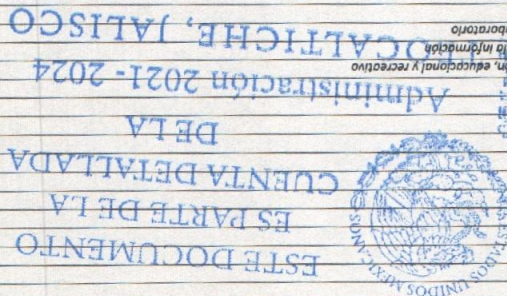 ESTE DOCUMENTO
ES PARTE DE LA
CUENTA DETALLADA
DE LA
Administración 2021 - 2024
OCALTICHE, JALISCO
ESTADOS UNIDOS MEXICANOS
educacional y recreativo
la información